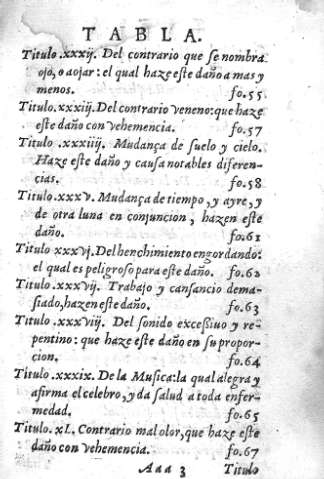 TABLA.
Titulo.xxxij. Del contrario que se nombra
ojo, o aojar: el qual haze este daño a mas y
menos. fo.55
Titulo.xxxiij. Del contrario veneno: que haze
este daño con vehemencia. fo.57
Titulo .xxxiiij. Mudança de suelo y cielo.
Haze este daño y causa notables diferen-
cias. fo.58
Titulo.xxxv. Mudança de tiempo, y ayre, y
de otra luna en conjuncion, hazen este
daño. fo.61
Titulo xxxvj. Del henchimiento engordando:
el qual es peligroso para este daño. fo.62
Titulo .xxxvij. Trabajo y cansancio dema-
siado, hazen este daño. fo.63
Titulo .xxxviij. Del sonido excessiuo y re-
pentino: que haze este daño en su propor-
cion. fo.64
Titulo.xxxix. De la Musica: la qual alegra y
afirma el celebro, y da salud a toda enfer-
medad. fo.65
Titulo. xL. Contrario mal olor, que haze este
daño con vehemencia. fo.67
Aaa 3 Titulo